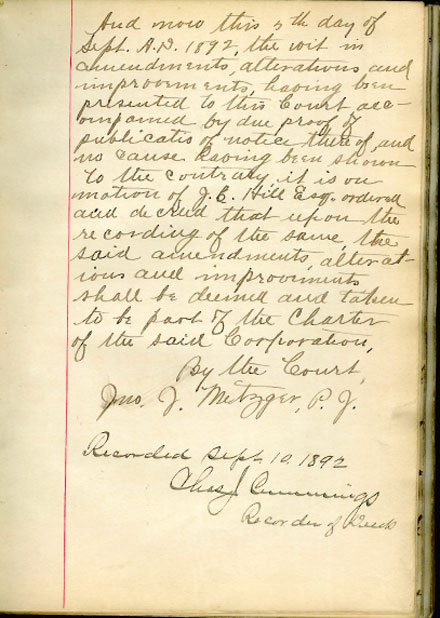 And now this 5th day of
Sept. A.D. 1892, the wit in
amendments, alterations and
improvements, having been
presented to this Court acc-
ompained by due proof of
publicatio of notice there of, and
no cause having been shown
to the contraty it is on
motion of J. C. Hill Esq. ordered
and decreed that upon the
recording of the same, the
said amendments, alterat-
ions and improvements
shall be deemed and taken
to be part of the Charter
of the said Corporation,
By the Court,
Jno. J. Metzger, P. J.
Recorded Sept. 10, 1892
Chas J. Cummings
Recorder of Deeds